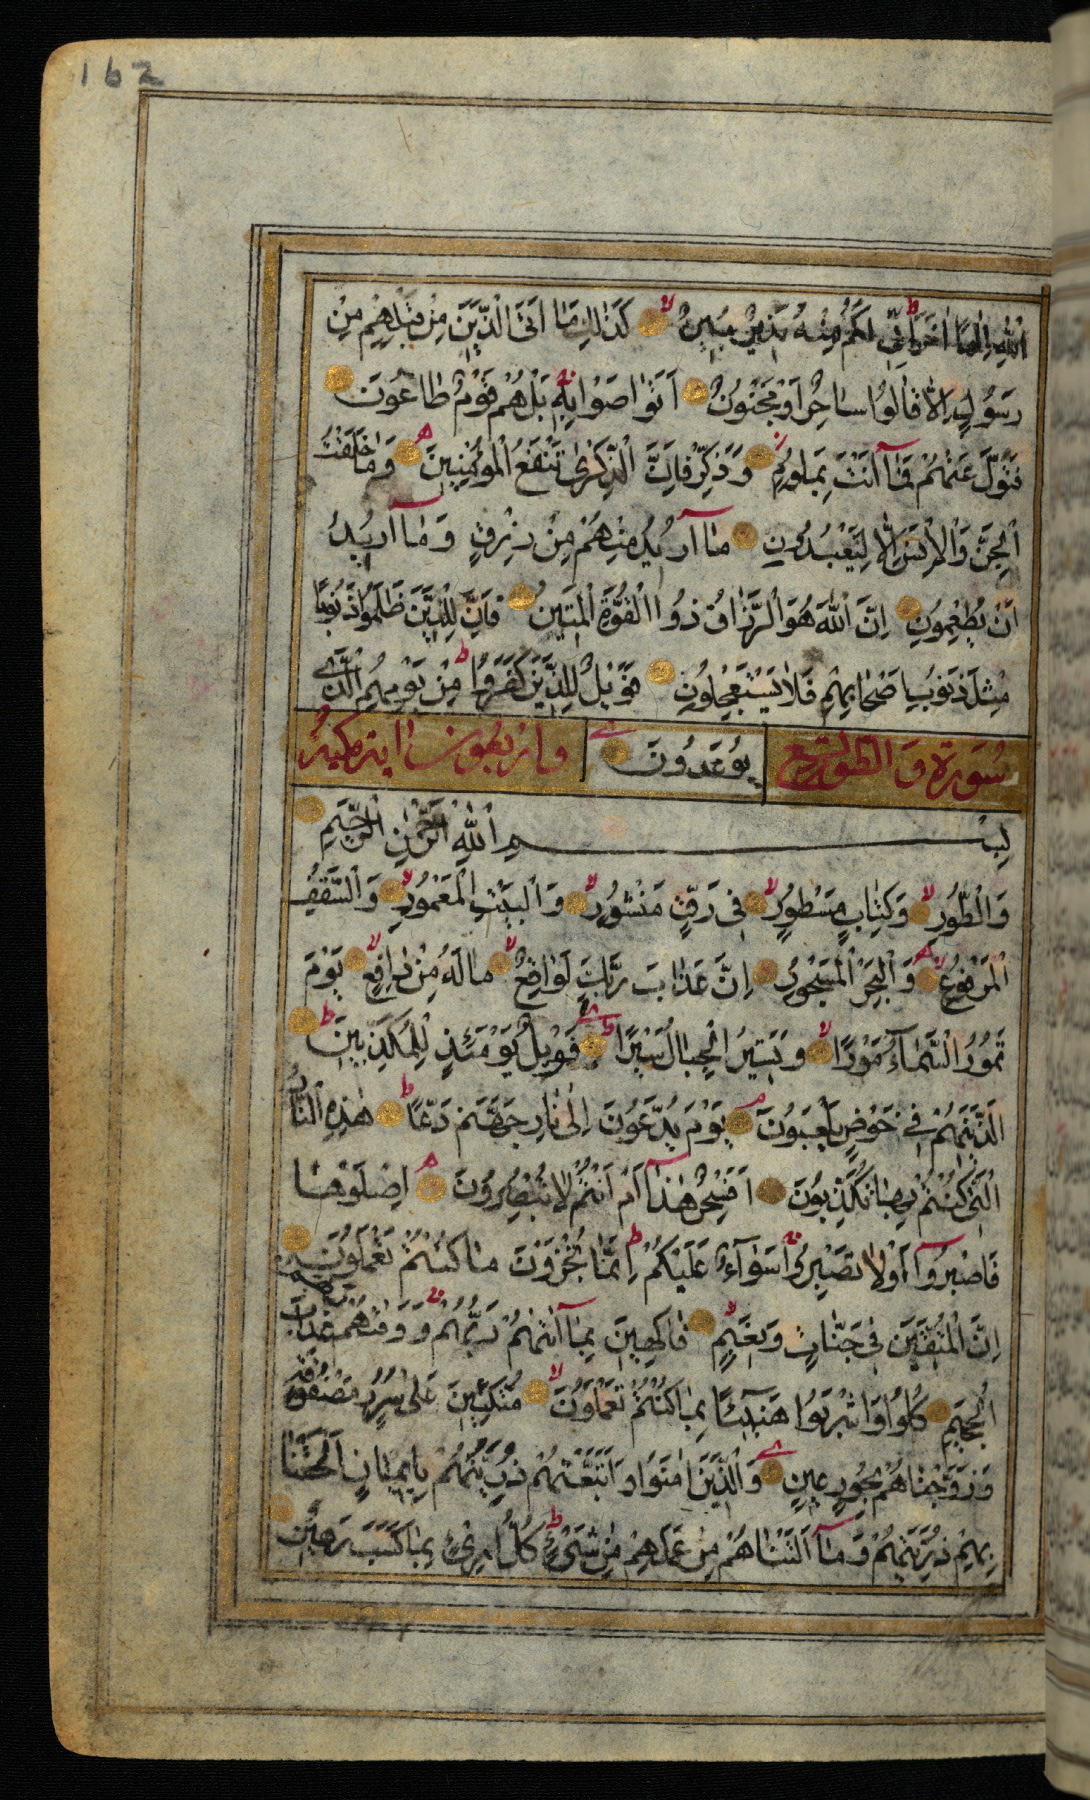 162
اللهِ اِلٰهًا اٰخَرَ اِنّى لَكُمْ مِنْهُ نَذِيرٌ مُبِينٌ كَذٰلِكَ مَا اَتَى الَّذِينَ مِنْ قَبْلِهِمْ مِنْ
رَسُولٍ اِلَّا قَالُوا سَاحِرٌ اَوْ مَجْنُونٌ اَتَوَاصَوْا بِهِ بَلْ هُمْ قَوْمٌ طَاغُونَ
فَتَوَلَّ عَنْهُمْ فَمَآ اَنْتَ بِمَلُومٍ وَذَكِّرْ فَاِنَّ الذِّكْرٰى تَنْفَعُ الْمُؤْمِنِينَ وَمَا خَلَقْتُ
الْجِنَّ وَالْاِنْسَ اِلَّا لِيَعْبُدُونِ مَآ اُرِيدُ مِنْهُمْ مِنْ رِزْقٍ وَمَآ اُرِيدُ
اَنْ يُطْعِمُونِ اِنَّ اللهَ هُوَ الرَّزَّاقُ ذُوا الْقُوَّةِ الْمَتِينُ فَاِنَّ لِلَّذِينَ ظَلَمُوا ذَنُوبًا
مِثْلَ ذَنُوبِ اَصْحَابِهِمْ فَلَا يَسْتَعْجِلُونِ فَوَيْلٌ لِلَّذِينَ كَفَرُوا مِنْ يَوْمِهِمُ الَّذِى
سُورَة وَالطور تسع يُوعَدُونَ واربعون اية مكية
بِسْمِ اللهِ الرَّحْمٰنِ الرَّحِيمِ
وَالطُّورِ وَكِتَابٍ مَسْطُورٍ فِى رَقٍّ مَنْشُورٍ وَالْبَيْتِ الْمَعْمُورِ وَالسَّقْفِ
الْمَرْفُوعِ وَالْبَحْرِ الْمَسْجُورِ اِنَّ عَذَابَ رَبِّكَ لَوَاقِعٌ مَالَهُ مِنْ دَافِعٍ يَوْمَ
تَمُورُ السَّمَآءُ مَوْرًا وَتَسِيرُ الْجِبَالُ سَيْرًا فَوَيْلٌ يَوْمَئِذٍ لِلْمُكَذِّبِينَ
الَّذِينَ هُمْ فِى خَوْضٍ يَلْعَبُونَ يَوْمَ يُدَعُّونَ اِلٰى نَارِ جَهَنَّمَ دَعًّا هٰذِهِ النَّارُ
الَّتِى كُنْتُمْ بِهَا تُكَذِّبُونَ اَفَسِحْرٌ هٰذَآ اَمْ اَنْتُمْ لَا تُبْصِرُونَ اِصْلَوْهَا
فَاصْبِرُوآ اَوْ لَا تَصْبِرُوا سَوَآءٌ عَلَيْكُمْ اِنَّمَا تُجْزَوْنَ مَا كُنْتُمْ تَعْمَلُونَ
اِنَّ الْمُتَّقِينَ فِى جَنَّاتٍ وَنَعِيمٍ فَاكِهِينَ بِمَآ اٰتٰهُمْ رَبُّهُمْ وَوَقٰهُمْ رَبُّهُمْ عَذَابَ
الْجَحِيمِ كُلُوا وَاشْرَبُوا هَنِيٓئًا بِمَا كُنْتُمْ تَعْمَلُونَ مُتَّكِئِينَ عَلٰى سُرُرٍ مَصْفُوفَةٍ
وَزَوَّجْنَاهُمْ بِحُورٍ عِينٍ وَالَّذِينَ اٰمَنُوا وَاتَّبَعَتْهُمْ ذُرِّيَّتُهُمْ بِاِيمَانٍ اَلْحَقْنَا
بِهِمْ ذُرِّيَّتَهُمْ وَمَآ اَلَتْنَاهُمْ مِنْ عَمَلِهِمْ مِنْ شَىْءٍ كُلُّ امْرِئٍ بِمَا كَسَبَ رَهِينٌ